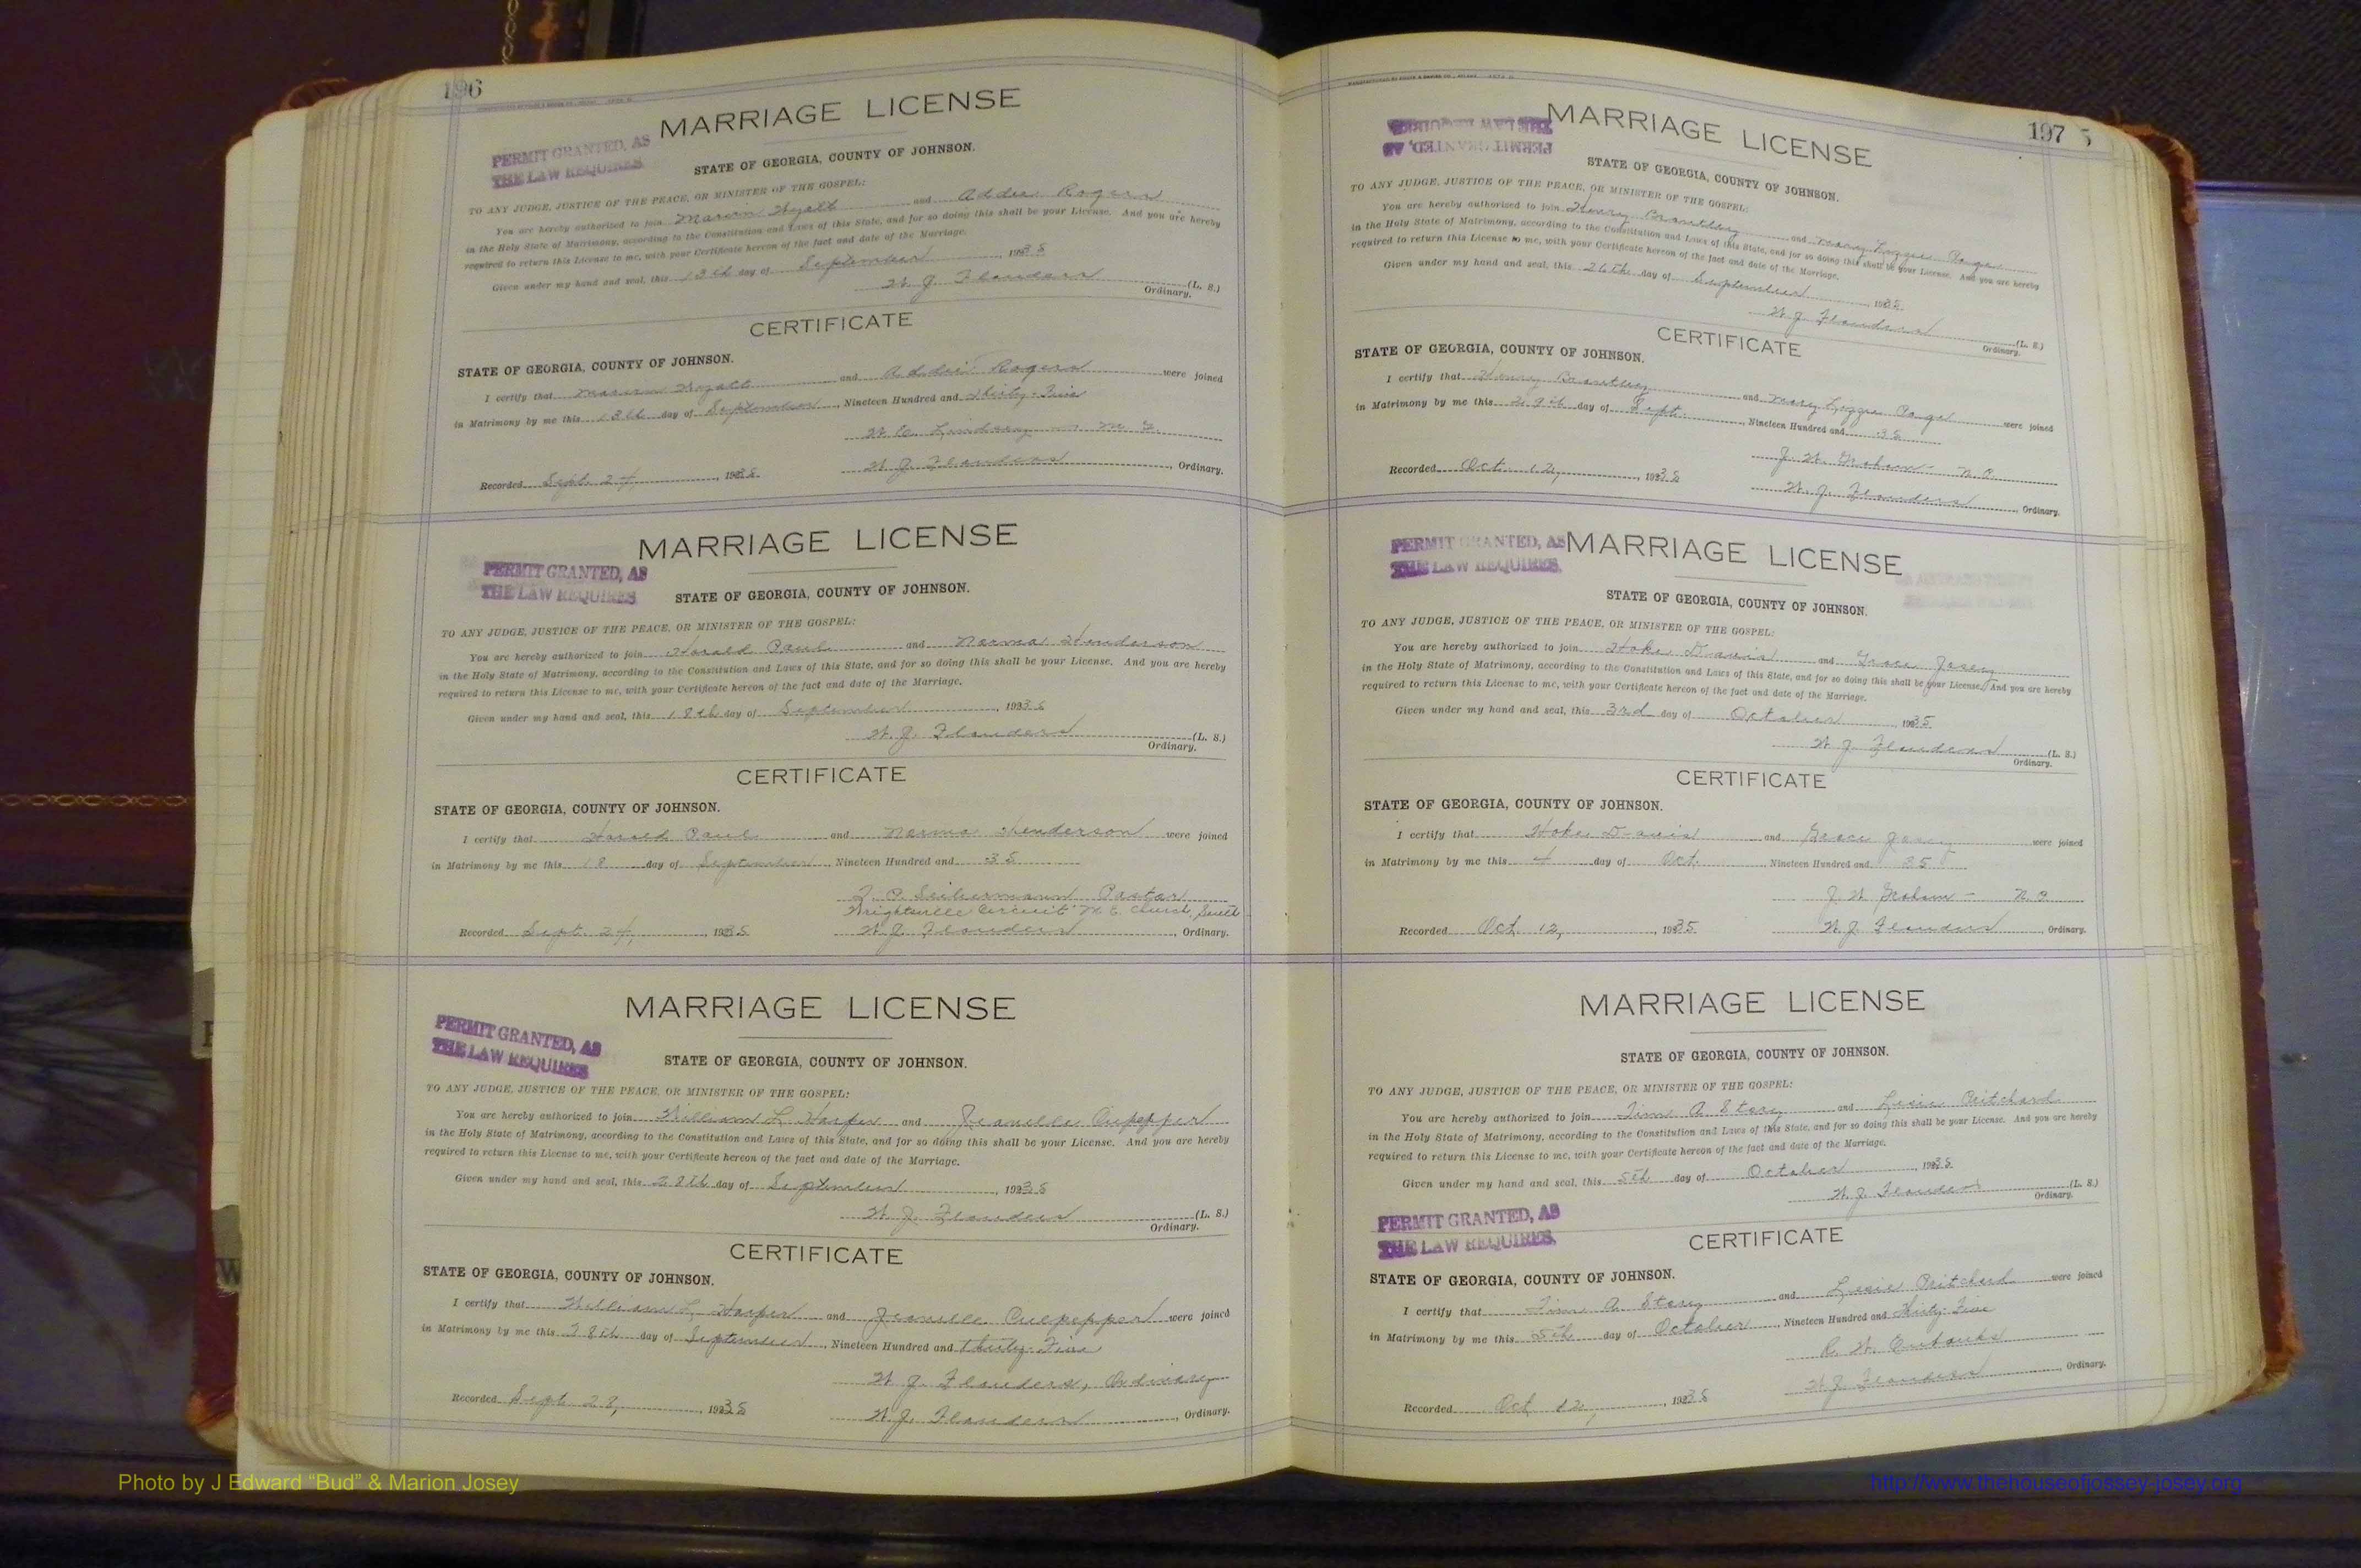 196
MARRIAGE LICENSE
PERMIT GRANTED, AS
THE LAW REQUIRES
STATE OF GEORGIA, COUNTY OF JOHNSON.
TO ANY JUDGE, JUSTICE OF THE PEACE, OR MINISTER OF THE GOSPEL:
You are hereby authorized to join Marvin Wyatt and Addie Rogers
in the Holy State of Matrimony, according to the Constitution and Laws of this State, and for so doing this shall be your License. And you are hereby
required to return this License to me, with your Certificate hereon of the fact and date of the Marriage.
Given under my hand and seal, this 13th day of September, 1935
W. J. Flanders (L. S.)
Ordinary.
CERTIFICATE
STATE OF GEORGIA, COUNTY OF JOHNSON.
I certify that Marvin Wyatt and Addie Rogers were joined
in Matrimony by me this 13th day of September, Nineteen Hundred and Thirty-Five
W. C. Lindsey M. G.
Recorded Sept. 24, 1935. W. J. Flanders, Ordinary.
MARRIAGE LICENSE
PERMIT GRANTED, AS
THE LAW REQUIRES
STATE OF GEORGIA, COUNTY OF JOHNSON.
TO ANY JUDGE, JUSTICE OF THE PEACE, OR MINISTER OF THE GOSPEL:
You are hereby authorized to join Harold Paul and Norma Henderson
in the Holy State of Matrimony, according to the Constitution and Laws of this State, and for so doing this shall be your License. And you are hereby
required to return this License to me, with your Certificate hereon of the fact and date of the Marriage.
Given under my hand and seal, this 18th day of September, 1935
W. J. Flanders (L. S.)
Ordinary.
CERTIFICATE
STATE OF GEORGIA, COUNTY OF JOHNSON.
I certify that Harold Paul and Norma Henderson were joined
in Matrimony by me this 18 day of September, Nineteen Hundred and 35
Pastor
Wrightsville Circuit M. E. Church, South
Recorded Sept. 24, 1935 W. J. Flanders, Ordinary.
MARRIAGE LICENSE
PERMIT GRANTED, AS
THE LAW REQUIRES
STATE OF GEORGIA, COUNTY OF JOHNSON.
TO ANY JUDGE, JUSTICE OF THE PEACE, OR MINISTER OF THE GOSPEL:
You are hereby authorized to join William L. Harper and Jeanelle Culpepper
in the Holy State of Matrimony, according to the Constitution and Laws of this State, and for so doing this shall be your License. And you are hereby
required to return this License to me, with your Certificate hereon of the fact and date of the Marriage.
Given under my hand and seal, this 28th day of September, 1935
W. J. Flanders (L. S.)
Ordinary.
CERTIFICATE
STATE OF GEORGIA, COUNTY OF JOHNSON.
I certify that William L. Harper and Jeanelle Culpepper were joined
in Matrimony by me this 28th day of September, Nineteen Hundred and Thirty-Five
W. J. Flanders, Ordinary
Recorded Sept 28, 1935 W. J. Flanders, Ordinary.
197
MARRIAGE LICENSE
PERMIT GRANTED, AS
THE LAW REQUIRES
STATE OF GEORGIA, COUNTY OF JOHNSON.
TO ANY JUDGE, JUSTICE OF THE PEACE, OR MINISTER OF THE GOSPEL:
You are hereby authorized to join Henry Brantley and Mary Lizzie Page
in the Holy State of Matrimony, according to the Constitution and Laws of this State, and for so doing this shall be your License. And you are hereby
required to return this License to me, with your Certificate hereon of the fact and date of the Marriage.
Given under my hand and seal, this 26th day of September, 1935
W. J. Flanders (L. S.)
Ordinary.
CERTIFICATE
STATE OF GEORGIA, COUNTY OF JOHNSON.
I certify that Henry Brantley and Mary Lizzie Page were joined
in Matrimony by me this 29th day of Sept., Nineteen Hundred and 35
J. W. Graham - N. P.
Recorded Oct. 12, 1935 W. J. Flanders, Ordinary.
PERMIT GRANTED, AS MARRIAGE LICENSE
THE LAW REQUIRES.
STATE OF GEORGIA, COUNTY OF JOHNSON.
TO ANY JUDGE, JUSTICE OF THE PEACE, OR MINISTER OF THE GOSPEL:
You are hereby authorized to join Hoke Davis and Grace Josey
in the Holy State of Matrimony, according to the Constitution and Laws of this State, and for so doing this shall be your License. And you are hereby
required to return this License to me, with your Certificate hereon of the fact and date of the Marriage.
Given under my hand and seal, this 3rd day of October, 1935
W. J. Flanders (L. S.)
Ordinary.
CERTIFICATE
STATE OF GEORGIA, COUNTY OF JOHNSON.
I certify that Hoke Davis and Grace Josey were joined
in Matrimony by me this 4 day of Oct., Nineteen Hundred and 35
J. W. Graham - N. P.
Recorded Oct. 12, 1935. W. J. Flanders, Ordinary.
MARRIAGE LICENSE
STATE OF GEORGIA, COUNTY OF JOHNSON.
TO ANY JUDGE, JUSTICE OF THE PEACE, OR MINISTER OF THE GOSPEL:
You are hereby authorized to join Jim A. Story and Lexie Pritchard
in the Holy State of Matrimony, according to the Constitution and Laws of this State, and for so doing this shall be your License. And you are hereby
required to return this License to me, with your Certificate hereon of the fact and date of the Marriage.
Given under my hand and seal, this 5th day of October, 1935
W. J. Flanders (L. S.)
Ordinary.
PERMIT GRANTED, AS
THE LAW REQUIRES.
CERTIFICATE
STATE OF GEORGIA, COUNTY OF JOHNSON.
I certify that Jim A. Story and Lexie Pritchard were joined
in Matrimony by me this 5th day of October, Nineteen Hundred and Thirty-Five
R. W. Eubanks
W. J. Flanders, Ordinary.
Recorded Oct 12, 1935
Photo by J Edward “Bud” & Marion Josey
http://www.thehouseofjossey-josey.org